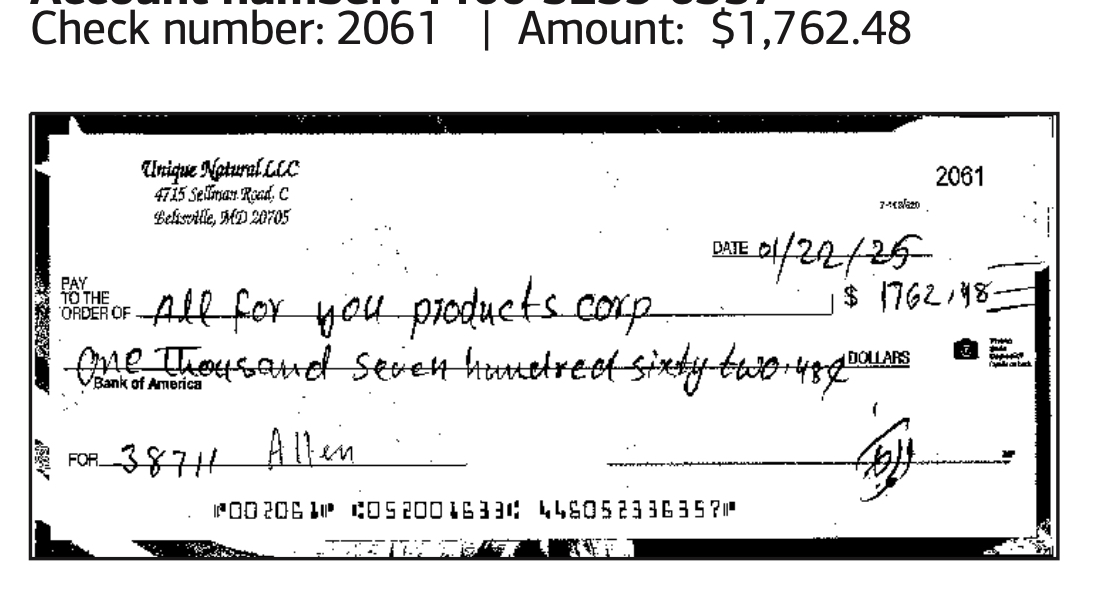 Check number: 2061 | Amount: $1,762.48
Unique Natural LLC
4715 Sellman Road, C
Beltsville, MD 20705
2061
DATE 01/22/25
PAY TO THE ORDER OF All for you products corp $ 1762.48
One Thousand seven hundred sixty two.48¢ DOLLARS
Bank of America
FOR 38711 Allen